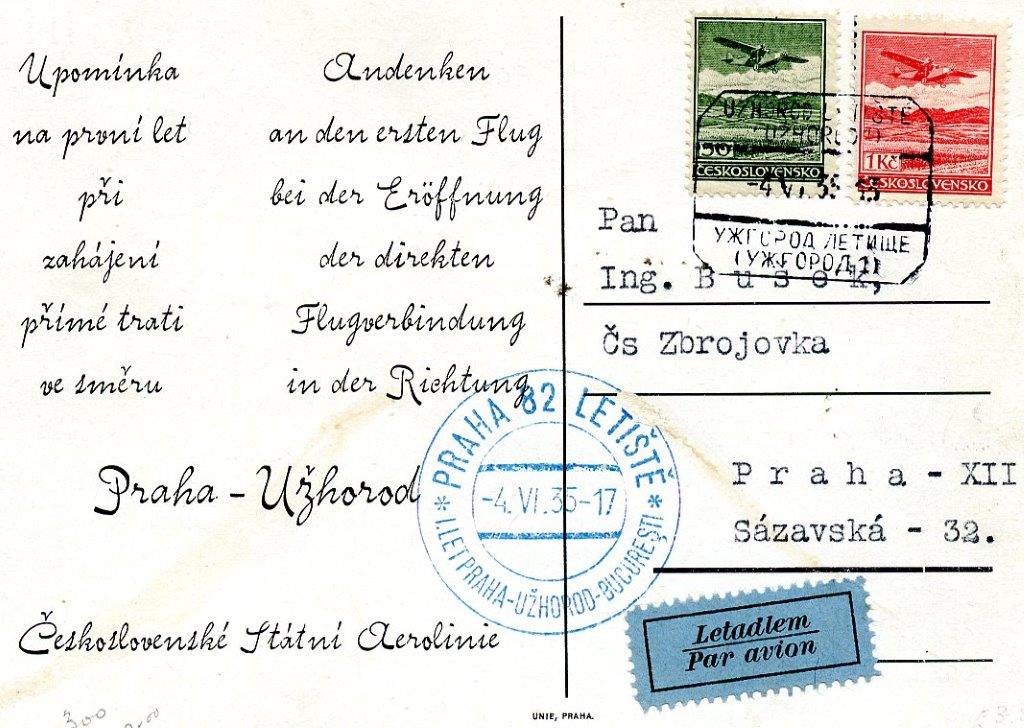 Upomínka
na první let
při
zahájení
přímé trati
ve směru
Andenken
an den ersten Flug
bei der Eröffnung
der direkten
Flugverbindung
in der Richtung
Praha - Užhorod
Československé Státní Aerolinie
50
ČESKOSLOVENSKO
1Kč
ČESKOSLOVENSKO
UŽHOROD LETIŠTĚ
-4.VI.35
УЖГОРОД ЛЕТИЩЕ
(УЖГОРОД 1)
Pan
Ing. Bušek,
Čs Zbrojovka
Praha - XII
Sázavská - 32.
PRAHA 82 LETIŠTĚ
-4.VI.35-17
I.LET PRAHA-UŽHOROD-BUCUREȘTI
Letadlem
Par avion
UNIE, PRAHA.
300